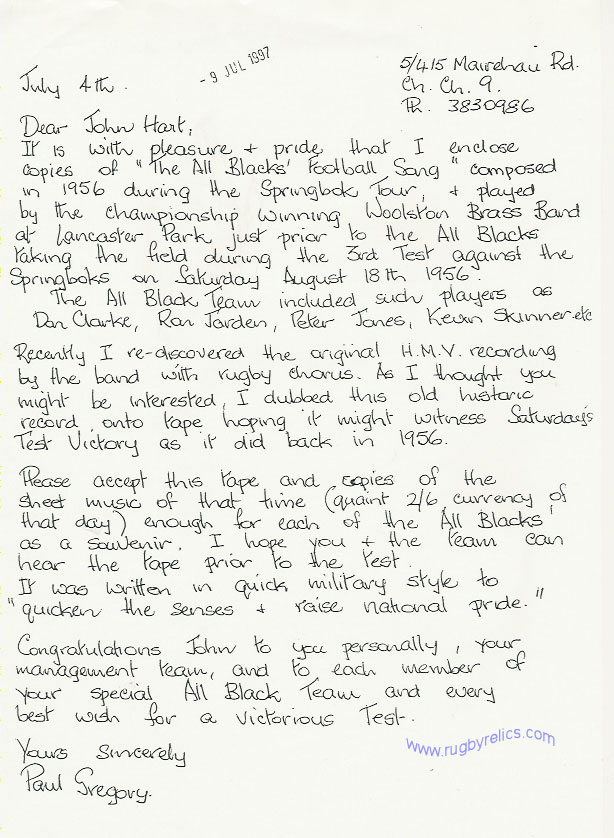 5/415 Mairehau Rd.
- 9 JUL 1997
July 4th.
Ch. Ch. 9.
Ph. 3830986
Dear John Hart,
It is with pleasure + pride that I enclose
copies of "The All Blacks' Football Song" composed
in 1956 during the Springbok Tour, + played
by the championship winning Woolston Brass Band
at Lancaster Park just prior to the All Blacks
taking the field during the 3rd Test against the
Springboks on Saturday August 18th 1956.
The All Black Team included such players as
Don Clarke, Ron Jarden, Peter Jones, Kevin Skinner etc
Recently I re-discovered the original H.M.V. recording
by the band with rugby chorus. As I thought you
might be interested, I dubbed this old historic
record onto tape hoping it might witness Saturday's
Test Victory as it did back in 1956.
Please accept this tape and copies of the
sheet music of that time (quaint 2/6 currency of
that day) enough for each of the All Blacks'
as a souvenir. I hope you + the team can
hear the tape prior to the test.
It was written in quick military style to
"quicken the senses + raise national pride."
Congratulations John to you personally, your
management team, and to each member of
your special All Black Team and every
best wish for a victorious Test.
Yours Sincerely
Paul Gregory.
www.rugbyrelics.com